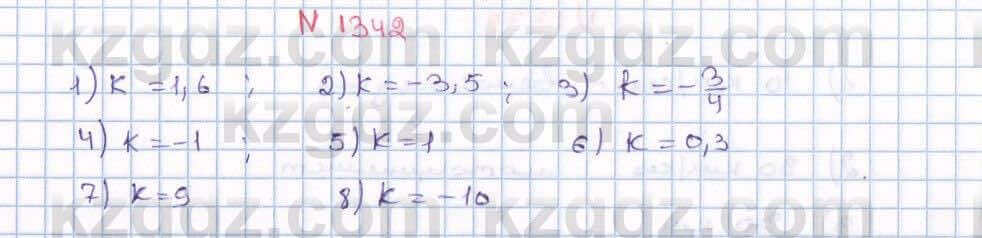 N 1342
1) k = 1,6 ; 2) k = -3,5 ; 3) k = -3/4
4) k = -1 ; 5) k = 1 6) k = 0,3
7) k = 9 8) k = -10
kzgdz.com kzgdz.com
kzgdz.com
kzgdz.com kzgdz.com